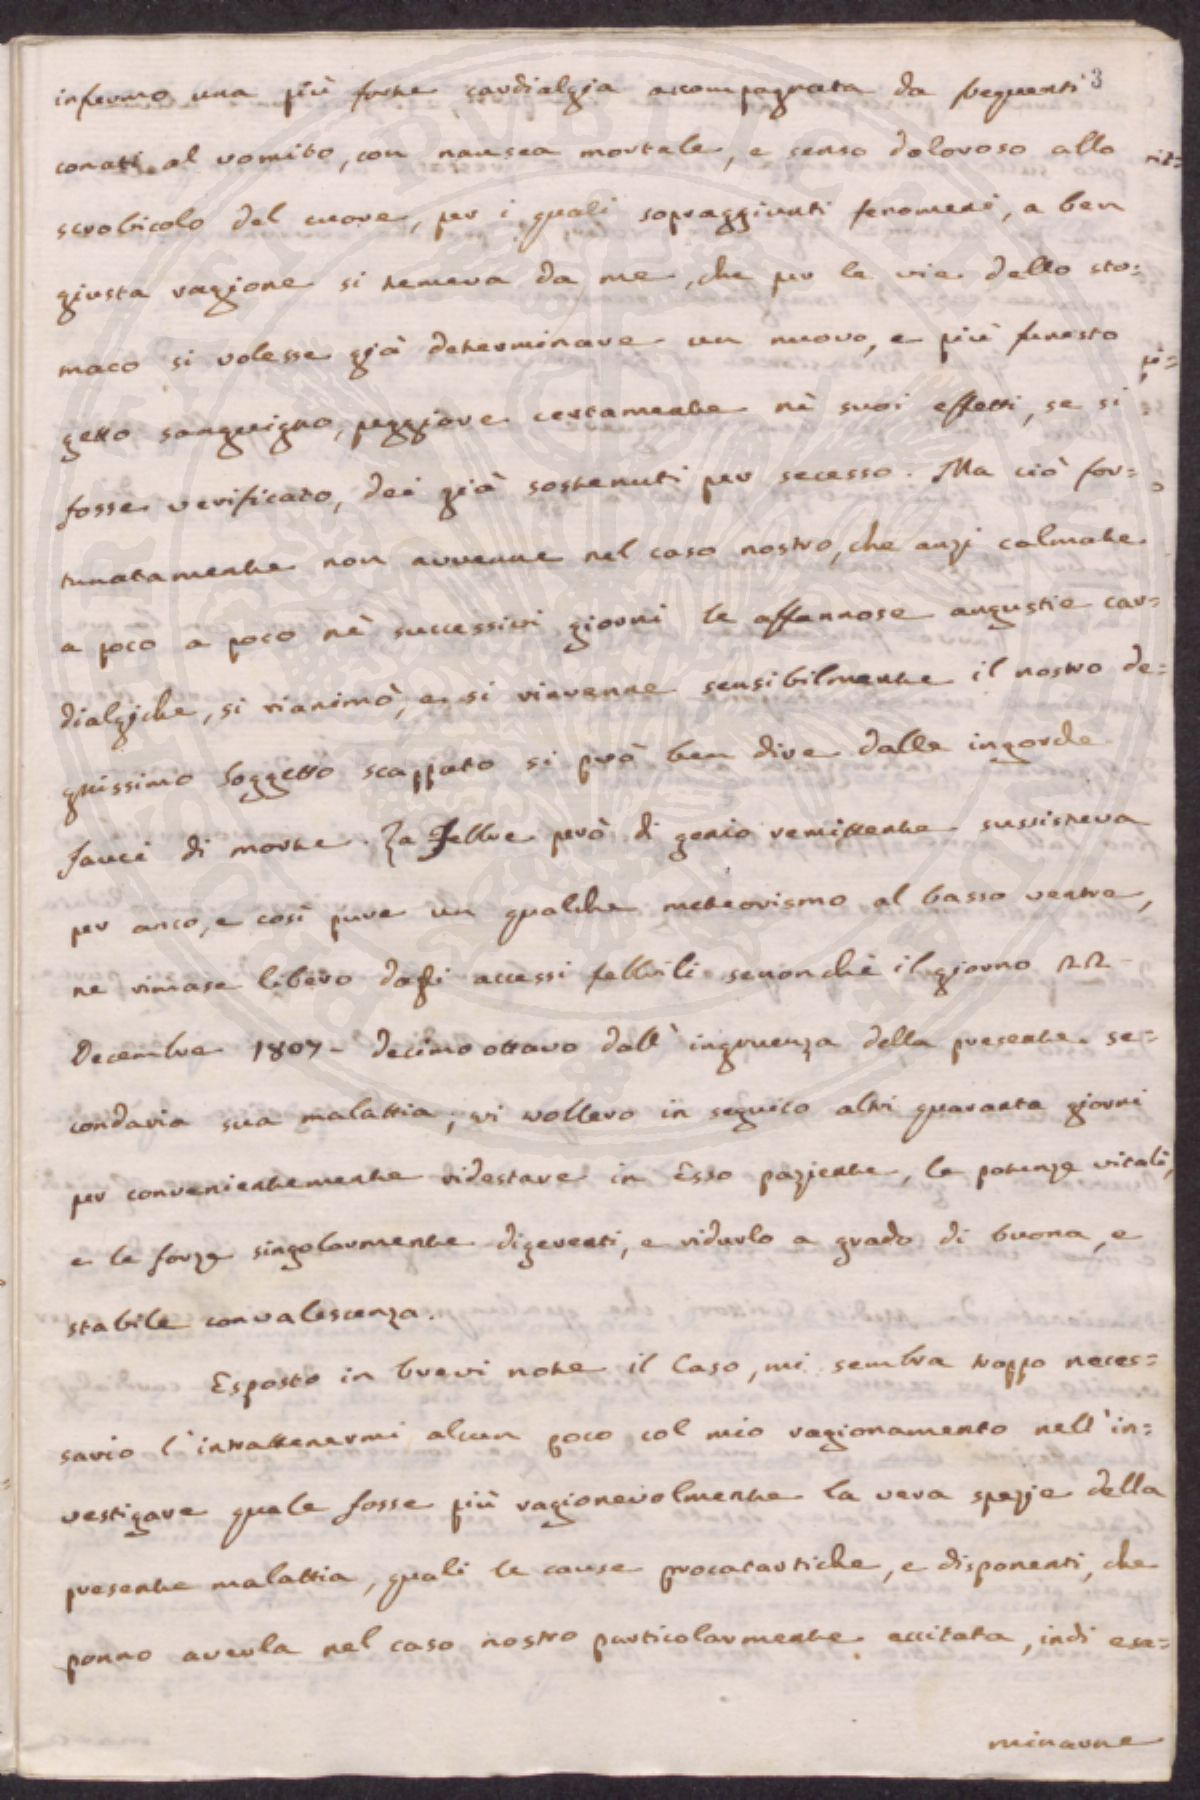 3
infermo una più forte cardialgia accompagnata da frequenti
conatti al vomito, con nausea mortale, e senso doloroso allo
scrobicolo del cuore, per i quali sopraggiunti fenomeni, a ben
giusta ragione si temeva da me, che per le vie dello sto=
maco si volesse già determinare un nuovo, e più funesto
getto sanguigno, peggiore certamente nè suoi effetti, se si
fosse verificato, dei già sostenuti per secesso. Ma ciò for=
tunatamente non avvenne nel caso nostro, che anzi calmate
a poco a poco nè successivi giorni le affannose angustie car=
dialgiche, si rianimò, e si rinvenne sensibilmente il nostro de=
gnissimo Soggetto scappato si può ben dire dalle ingorde
fauci di morte. La Febbre però di genio remittente sussisteva
per anco, e così pure un qualche meteorismo al basso ventre,
ne rimase libero dagli accessi febbrili senonchè il giorno 22
Decembre 1807 - decimo ottavo dall' ingruenza della presente se=
condaria sua malattia, vi vollero in seguito altri quaranta giorni
per convenientemente ridestare in Esso paziente, le potenze vitali,
e le forze singolarmente digerenti, e ridurlo a grado di buona, e
stabile convalescenza.
Esposto in brevi note il Caso, mi sembra troppo neces=
sario l'intrattenermi alcun poco col mio ragionamento nell'in=
vestigare quale fosse più ragionevolmente la vera spezie della
presente malattia, quali le cause procatartiche, e disponenti, che
ponno averla nel caso nostro particolarmente eccitata, indi esa=
minarne